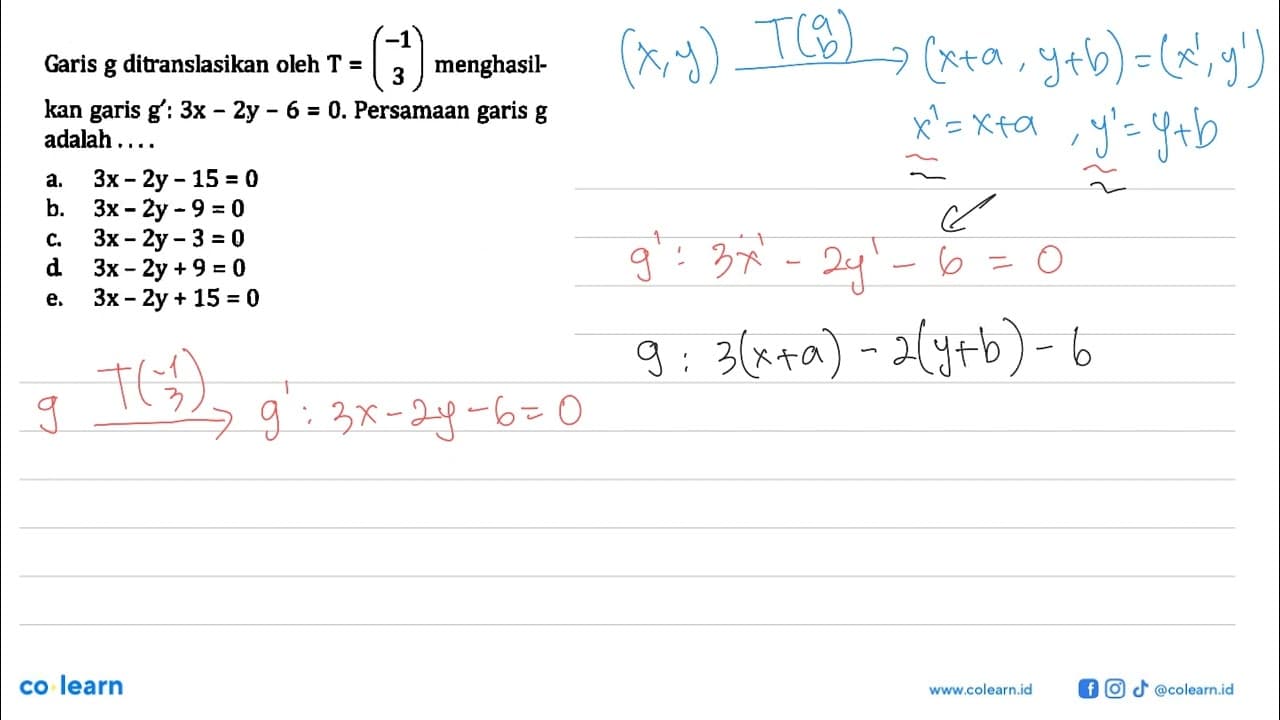 Garis g ditranslasikan oleh T = (-1 3) menghasil-
kan garis g': 3x - 2y - 6 = 0. Persamaan garis g
adalah ....
a. 3x - 2y - 15 = 0
b. 3x - 2y - 9 = 0
c. 3x - 2y - 3 = 0
d 3x - 2y + 9 = 0
e. 3x - 2y + 15 = 0
g T(-1 3) → g' : 3x - 2y - 6 = 0
(x, y) T(a b) → (x+a , y+b) = (x', y')
x' = x+a , y' = y+b
g' : 3x' - 2y' - 6 = 0
g : 3(x+a) - 2(y+b) - 6
co learn
www.colearn.id
@colearn.id